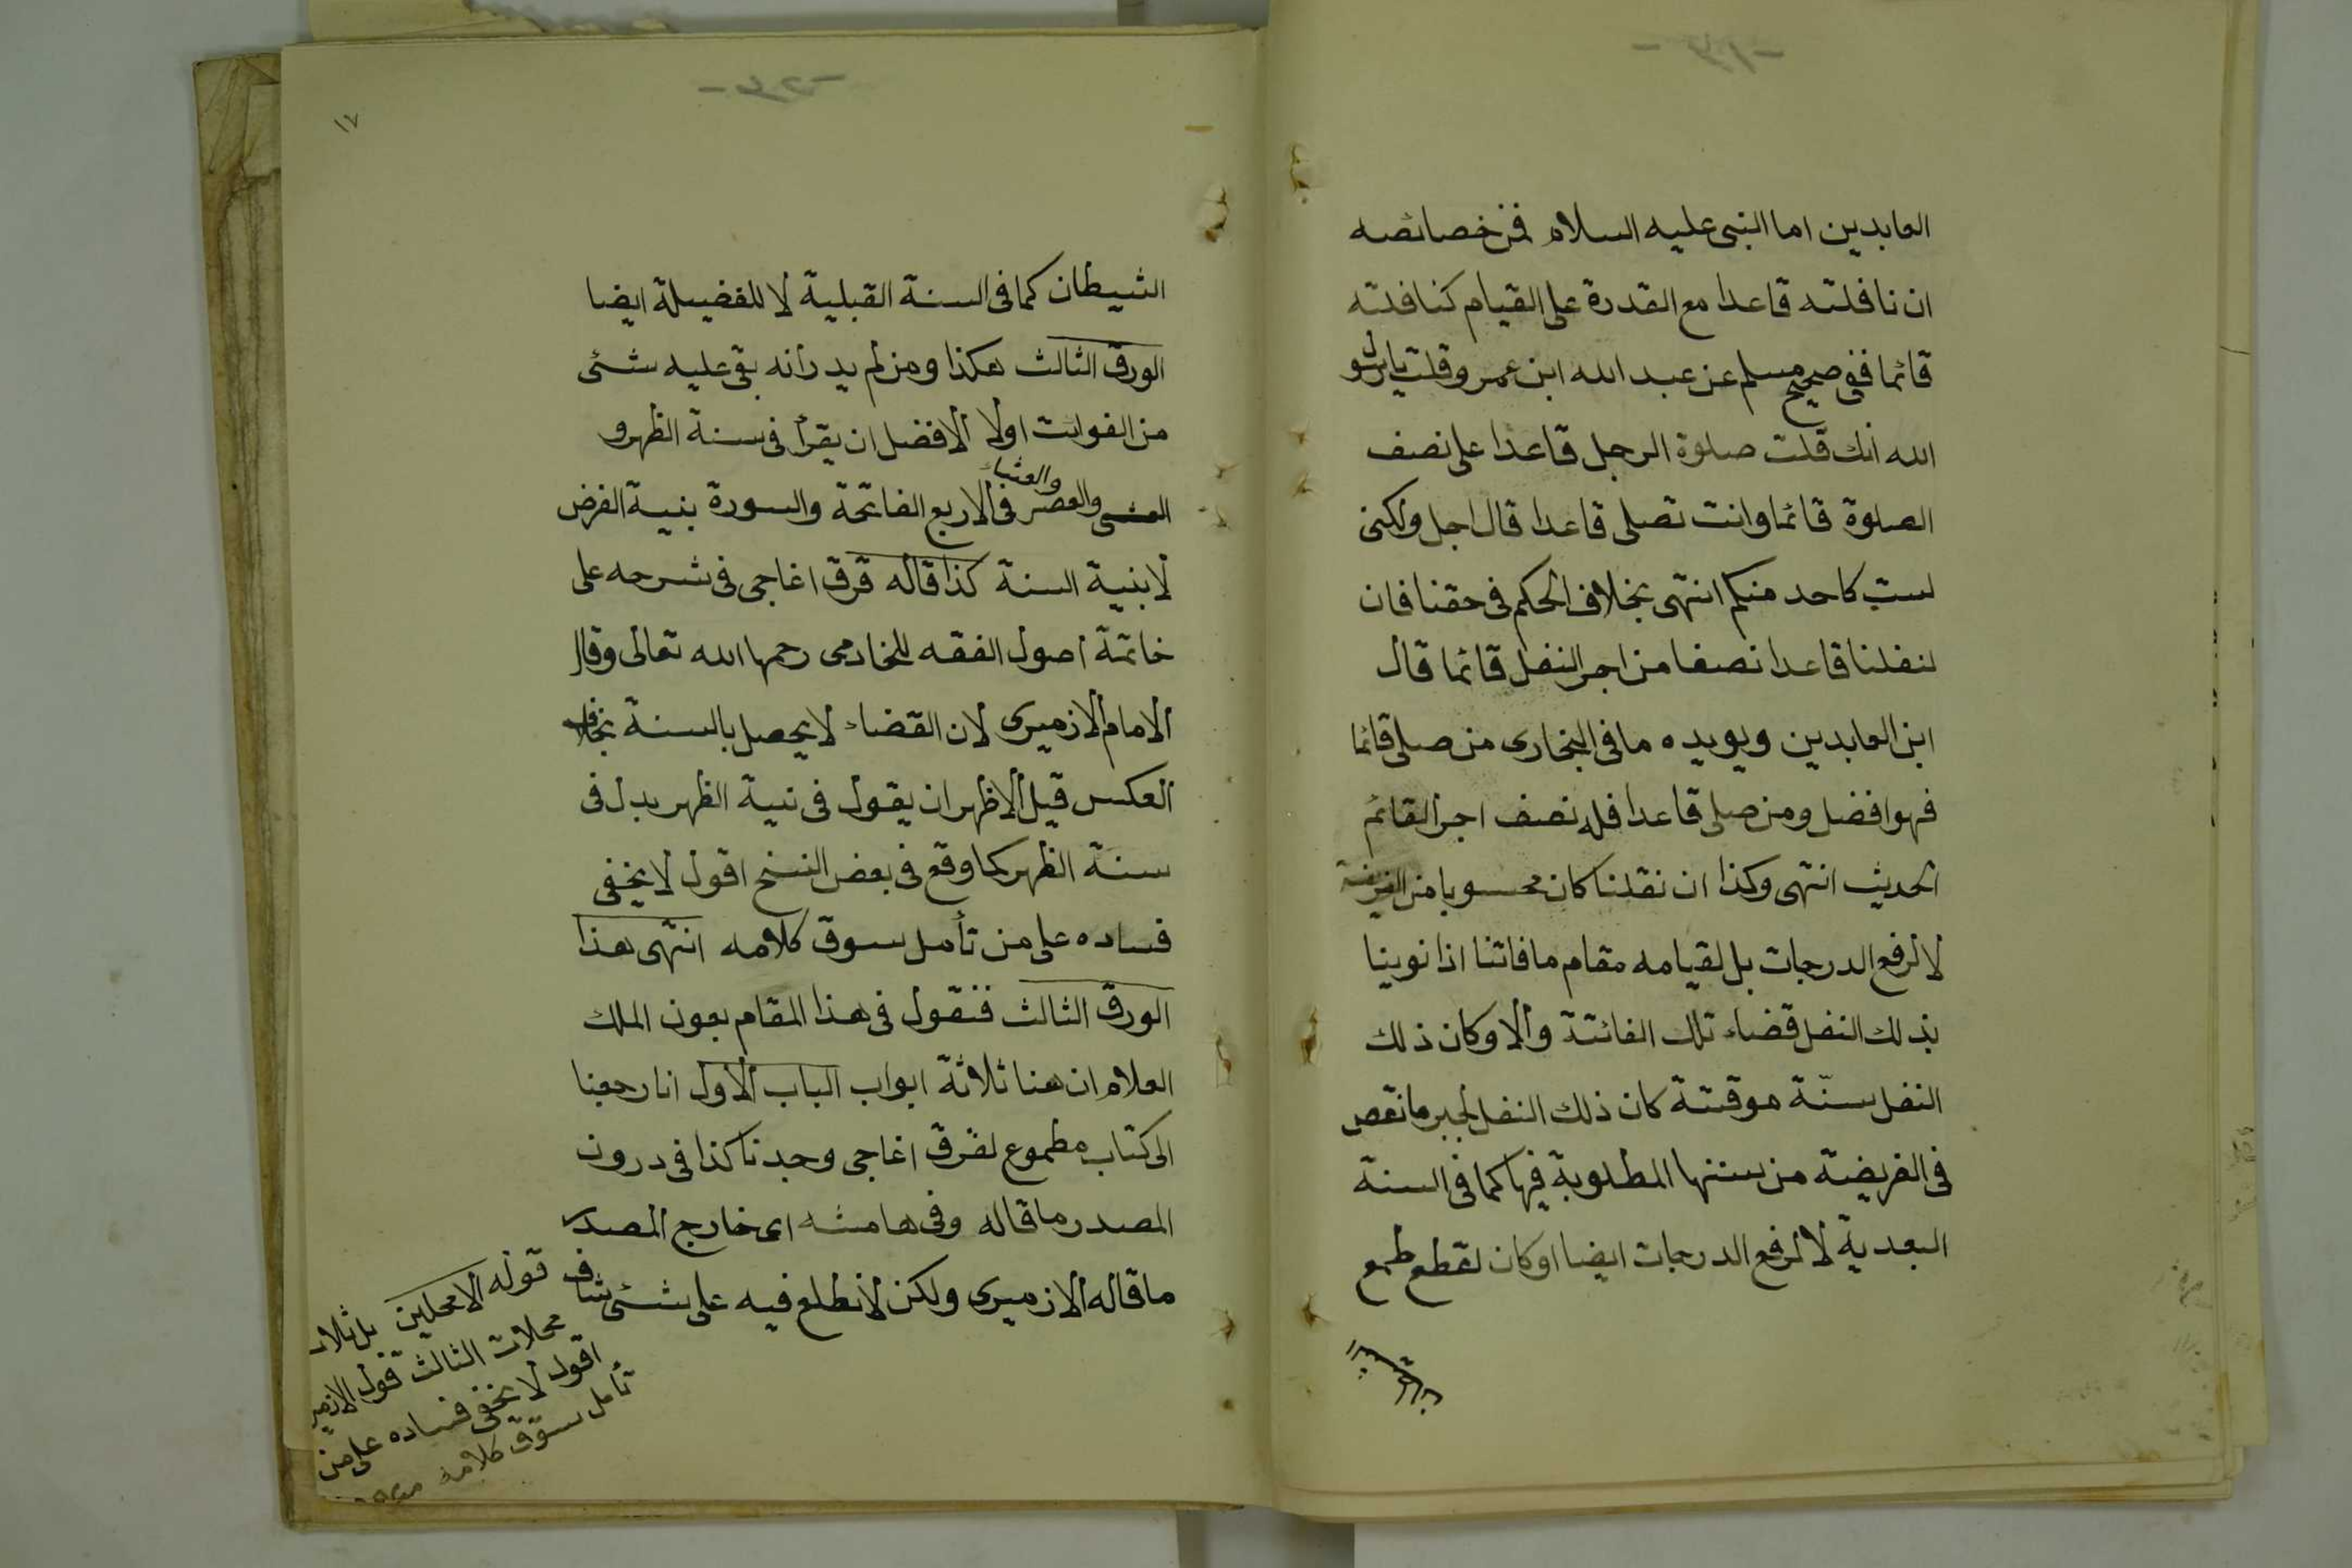 العابدين اما النبى عليه السلام فمن خصائصه
ان نافلته قاعدا مع القدرة على القيام كنافلته
قائما ففى صحيح مسلم عن عبد الله ابن عمرو قلت يا رسو
الله انك قلت صلوة الرجل قاعدا على نصف
الصلوة قائما وانت تصلى قاعدا قال اجل ولكنى
لست كاحد منكم انتهى بخلاف الحكم فى حقنا فان
لنفلنا قاعدا نصفا من اجر النفل قائما قال
ابن العابدين ويويده ما فى البخارى من صلى قائما
فهو افضل ومن صلى قاعدا فله نصف اجر القائم
الحديث انتهى وكذا ان نفلنا كان محسوبا من الفريضة
لا لرفع الدرجات بل لقيامه مقام ما فاتنا اذا نوينا
بذلك النفل قضاء تلك الفائتة والا وكان ذلك
النفل سنّة موقتة كان ذلك النفل لجبر ما نقص
فى الفريضة من سننها المطلوبة فيها كما فى السنة
البعدية لا لرفع الدرجات ايضا او كان لقطع طمع
١٧
الشيطان كما فى السنة القبلية لا للفضيلة ايضا
الورق الثالث هكذا ومن لم يدر انه بقى عليه شئى
من الفوائت اولا الافضل ان يقرأ فى سنة الظهر و
والعشاء
والعصر فى الاربع الفاتحة والسورة بنية الفرض
لا بنية السنة كذا قاله قرق اغاجى فى شرحه على
خاتمة اصول الفقه للخادمى رحمها الله تعالى وقال
الامام الازميرى لان القضاء لا يحصل بالسنة بخلاف
العكس قيل الاظهر ان يقول فى نية الظهر بدل فى
سنة الظهر كما وقع فى بعض النسخ اقول لا يخفى
فساده على من تأمل سوق كلامه انتهى هذا
الورق الثالث فنقول فى هذا المقام بعون الملك
العلام ان هنا ثلاثة ابواب الباب الاول انا رجعنا
الى كتاب مطموع لقرق اغاجى وجدنا كذا فى درون
المصدر ما قاله وفى هامشه اى خارج المصدر
ما قاله الازميرى ولكن لا نطلع فيه على شئى شاف
قوله الا محلين بل ثلاث
محلات الثالث قول الازمير
اقول لا يخفى فساده على من
تأمل سوق كلامه